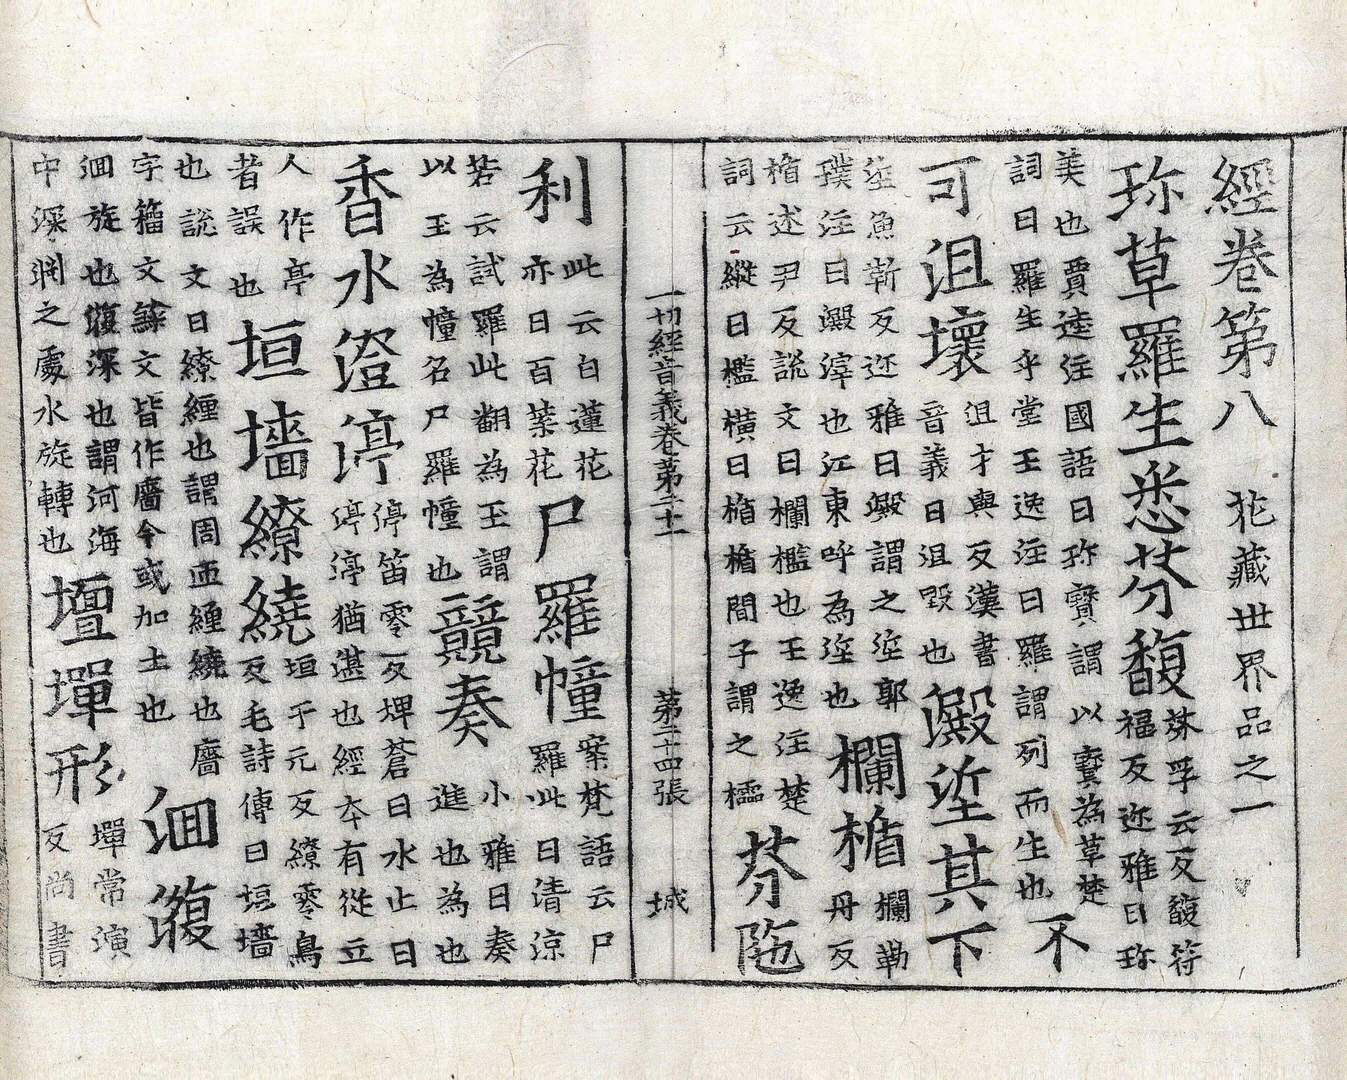 經卷第八 花藏世界品之一
珎草羅生悉芬馥 芬孚云反馥符
福反迩雅曰珎
美也賈逵注國語曰珎寶謂以寶為草楚
詞曰羅生乎堂王逸注曰羅謂列而生也 不
可沮壞 沮才與反漢書
音義曰沮毀也 澱埿其下
埿魚靳反迩雅曰澱謂之埿郭
璞注曰澱滓也江東呼為埿也 欄楯 欄勒
丹反
楯述尹反說文曰欄檻也王逸注楚
詞云縱曰檻橫曰楯楯間子謂之櫺 芬陁
一切經音義卷第二十一 第二十四張 城
利 此云白蓮花
亦曰百葉花 尸羅幢 案梵語云尸
羅此曰清涼
若云試羅此翻為玉謂
以玉為幢名尸羅幢也 競奏 小雅曰奏
進也為也
香水澄渟 渟笛零反埤蒼曰水止曰
渟渟猶湛也經本有從立
人作亭
者誤也 垣墻繚繞 垣于元反繚零鳥
反毛詩傳曰垣墻
也說文曰繚纏也謂周匝纏繞也廧
字籀文文皆作廧今或加土也 洄澓
洄旋也澓深也謂河海
中深渕之處水旋轉也 壇墠形 墠常演
反尚書